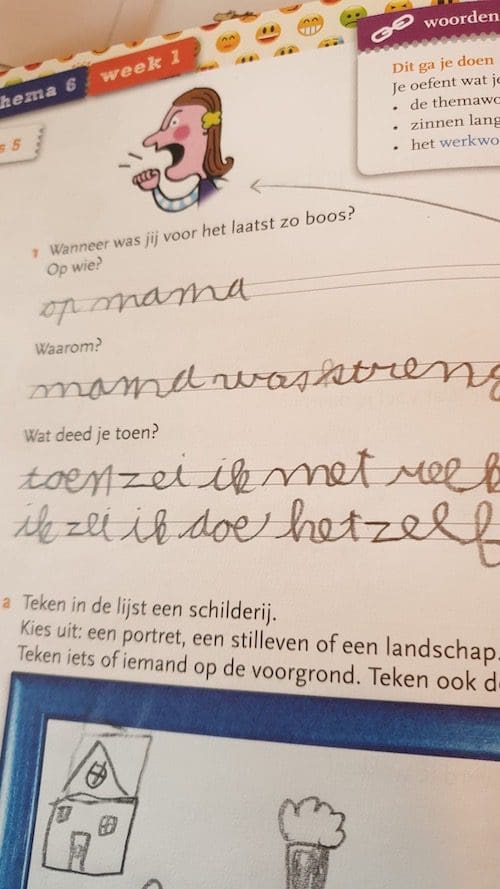 hema 6
week 1
s 5
woorden
Dit ga je doen
Je oefent wat je
• de themawo
• zinnen lang
• het werkwo
1 Wanneer was jij voor het laatst zo boos?
Op wie?
op mama
Waarom?
mama was streng
Wat deed je toen?
toen zei ik met
ik zei ik doe het zelf
a Teken in de lijst een schilderij.
Kies uit: een portret, een stilleven of een landschap.
Teken iets of iemand op de voorgrond. Teken ook d